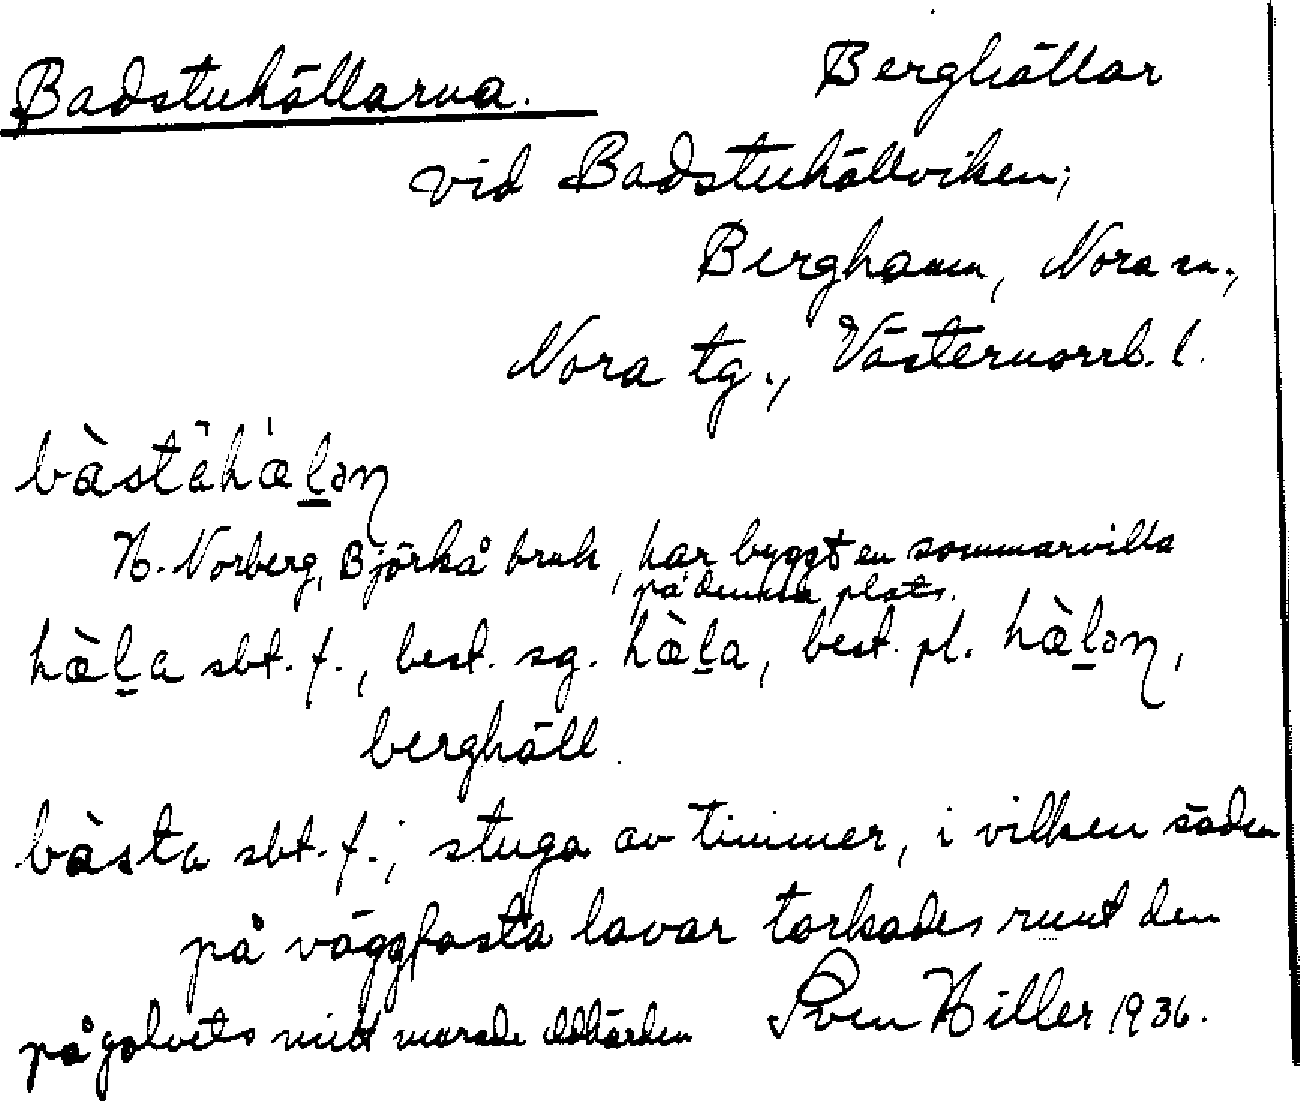 Badstuhällarna. Berghällar
vid Badstuhällviken,
Berghamn, Nora sn.,
Nora tg., Västernorrl. l.
bàstahæ̀l̲ən̡
H. Norberg, Björkå bruk, har byggt en sommarvilla
på denna plats.
hæ̀l̲a sbt. f., best. sg. hæ̀l̲a, best. pl. hæ̀l̲ən̡,
berghäll.
bàsta sbt. f.; stuga av timmer, i vilken säden
på väggfasta lavar torkades runt den
på golvets mitt murade eldhärden Sven Hiller 1936.